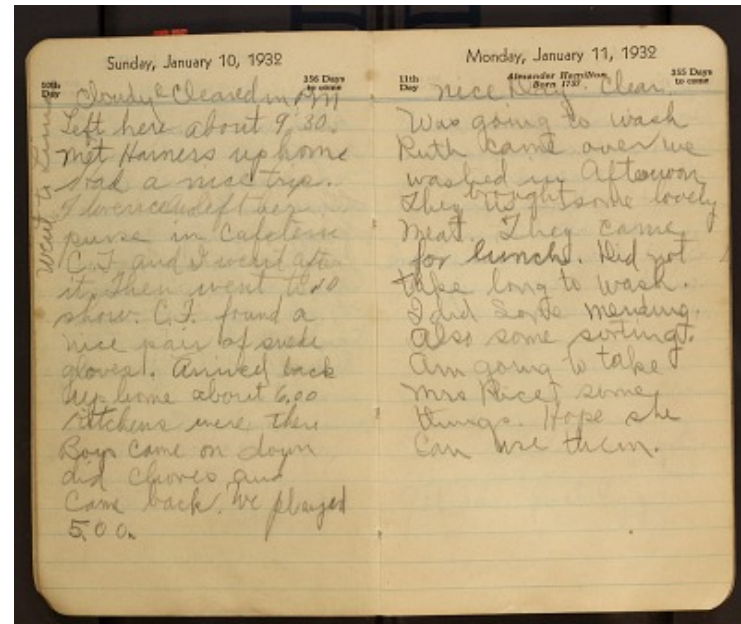 Sunday, January 10, 1932
10th Day
356 Days to come
Cloudy & Cleared in PM
Left here about 9:30.
Met Harners up home
had a nice trip.
left her
purse in Cafeteria
C.F. and I went after
it. Then went to
show. C.F. found a
nice pair of suede
gloves. Arrived back
up home about 6.00
Kitchens were there
Boys came on down
did chores and
came back. We played
500.
Went to
Monday, January 11, 1932
11th Day
Alexander Hamilton Born 1757
355 Days to come
nice Day. Clear.
Was going to wash
Ruth came over we
washed in Afternoon
They brought us some lovely
meat. They came
for lunch. Did not
take long to wash.
I did some mending.
Also some sorting.
Am going to take
Mrs Rice some
things. Hope she
can use them.